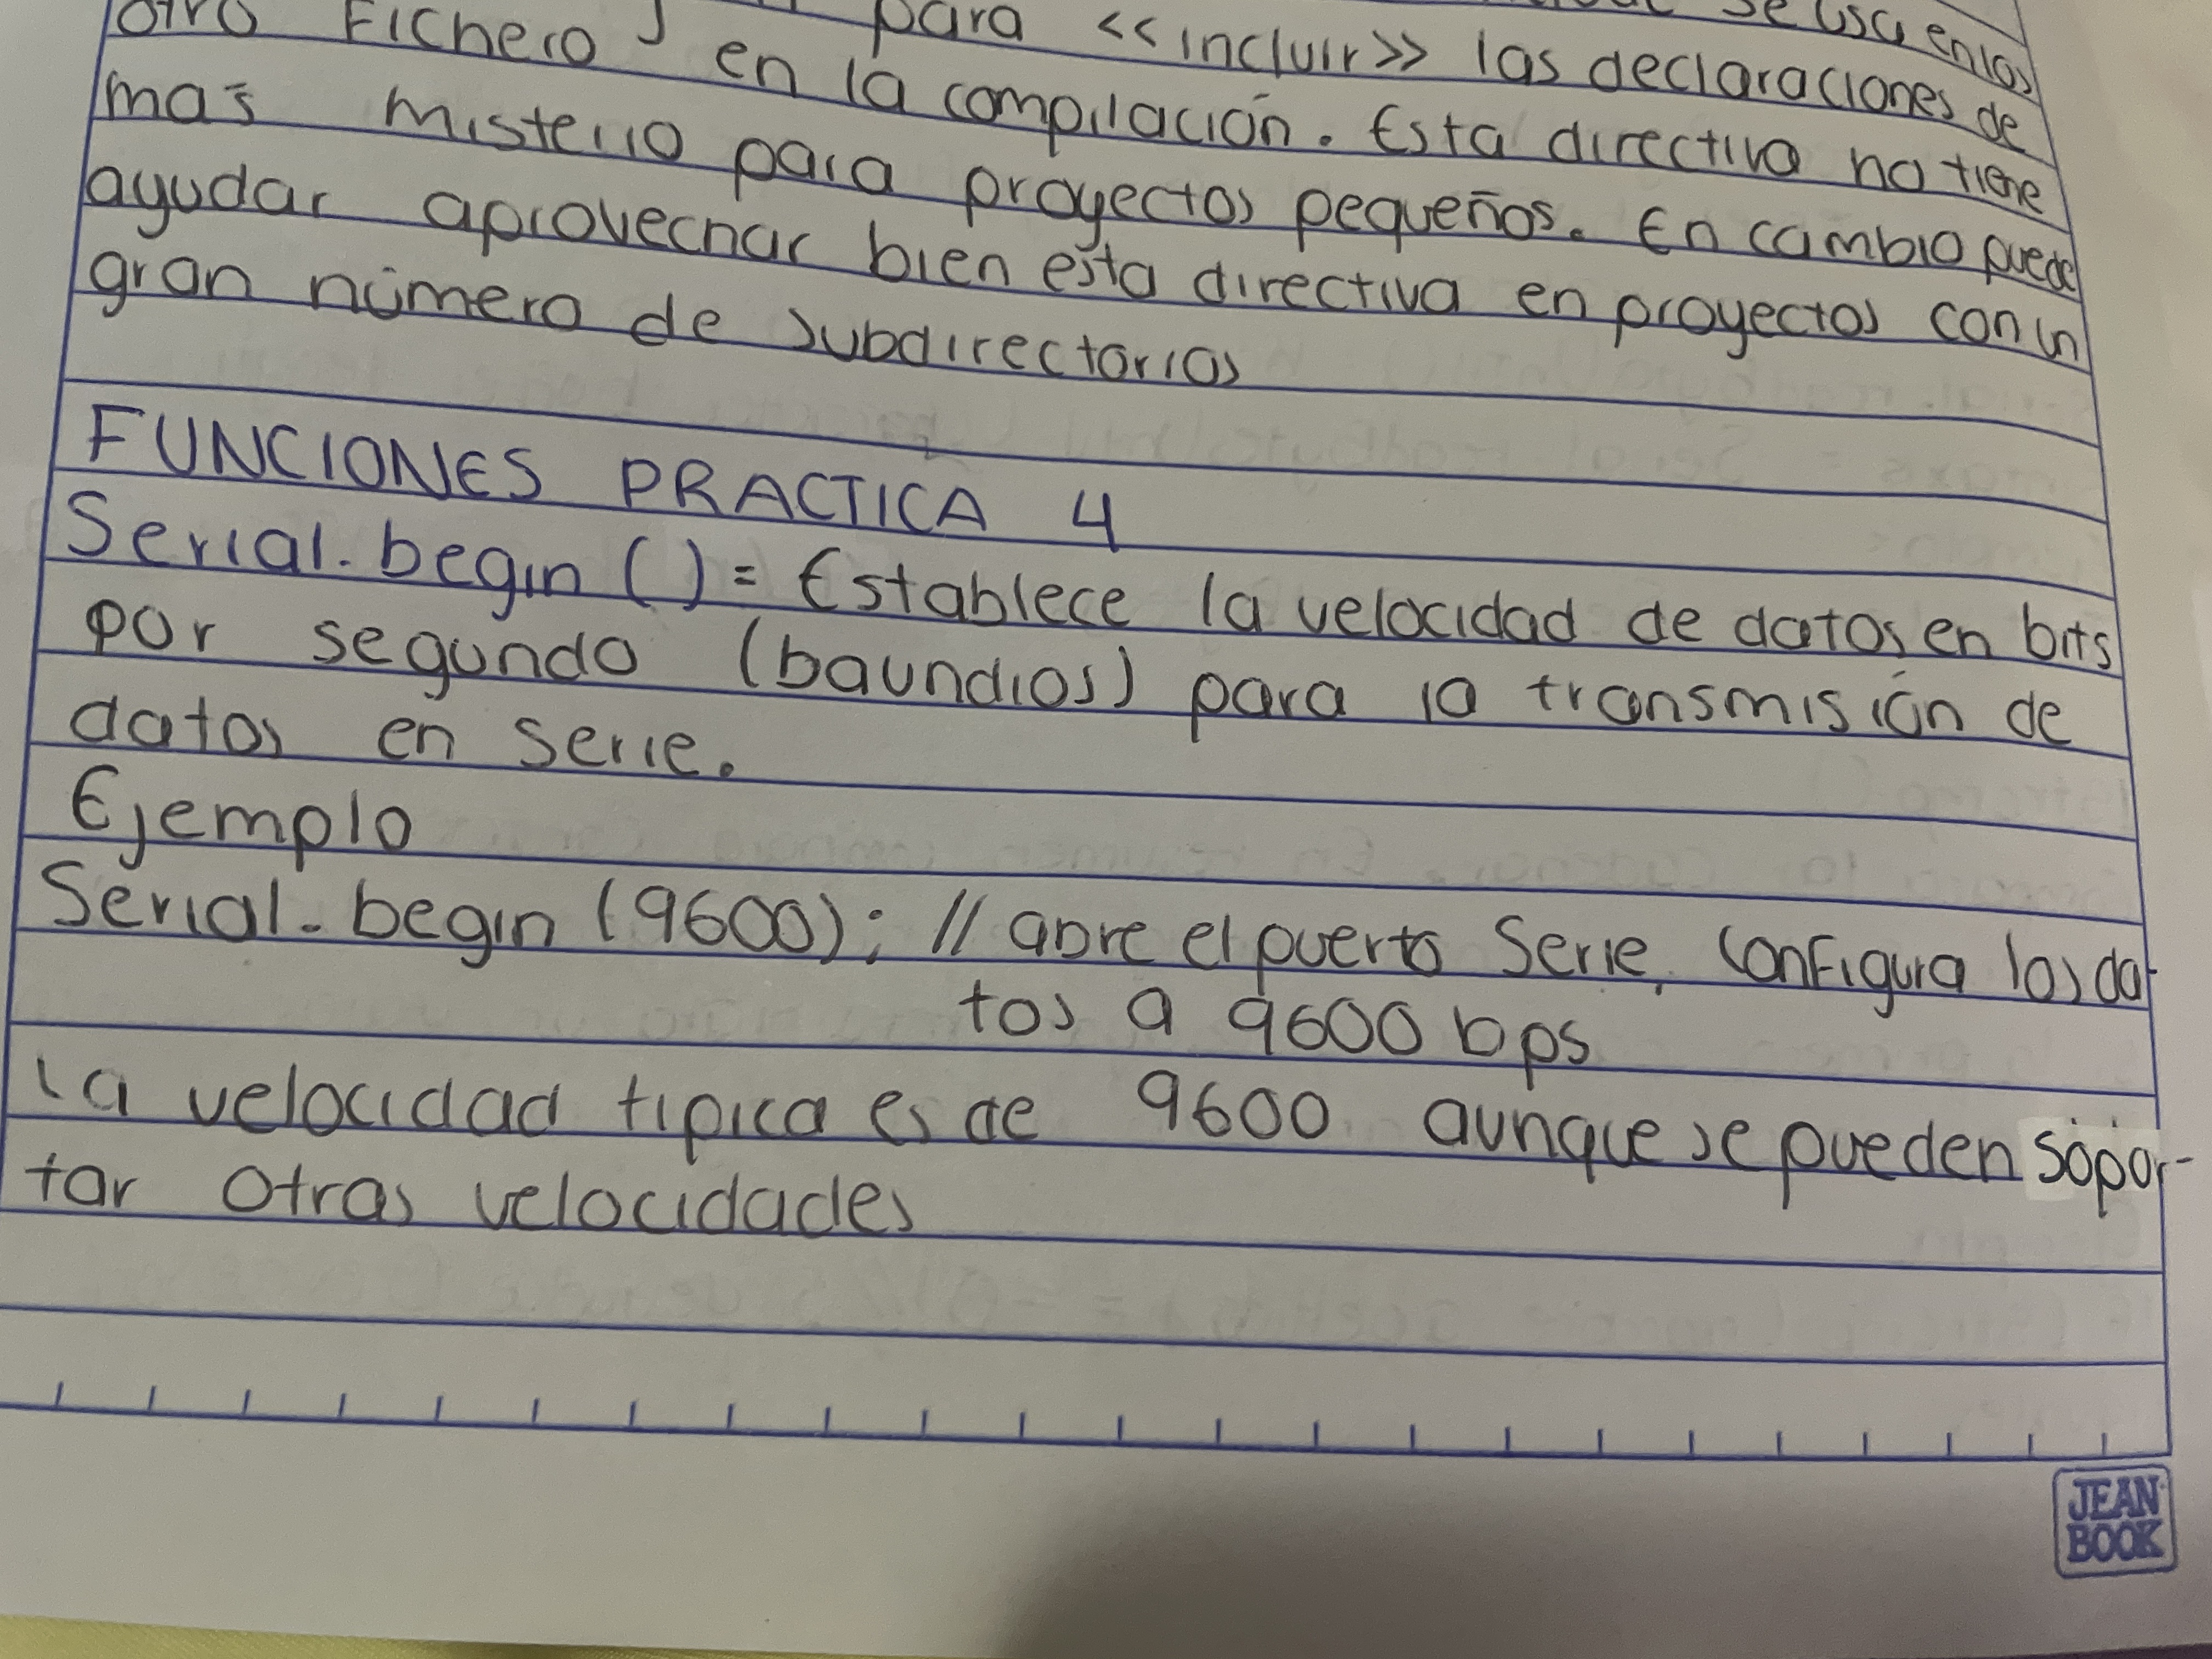 se usa en los
para <<incluir>> las declaraciones de
otro Fichero en la compilación. Esta directiva no tiene
mas misterio para proyectos pequeños. En cambio puede
ayudar aprovechar bien esta directiva en proyectos con un
gran número de subdirectorios
FUNCIONES PRACTICA 4
Serial.begin ( ) = Establece la velocidad de datos en bits
por segundo (baundios) para la transmisión de
datos en serie.
Ejemplo
Serial.begin (9600); // abre el puerto Serie, configura los da-
tos a 9600 bps
la velocidad tipica es de 9600 aunque se pueden sopor-
tar otras velocidades
JEAN
BOOK